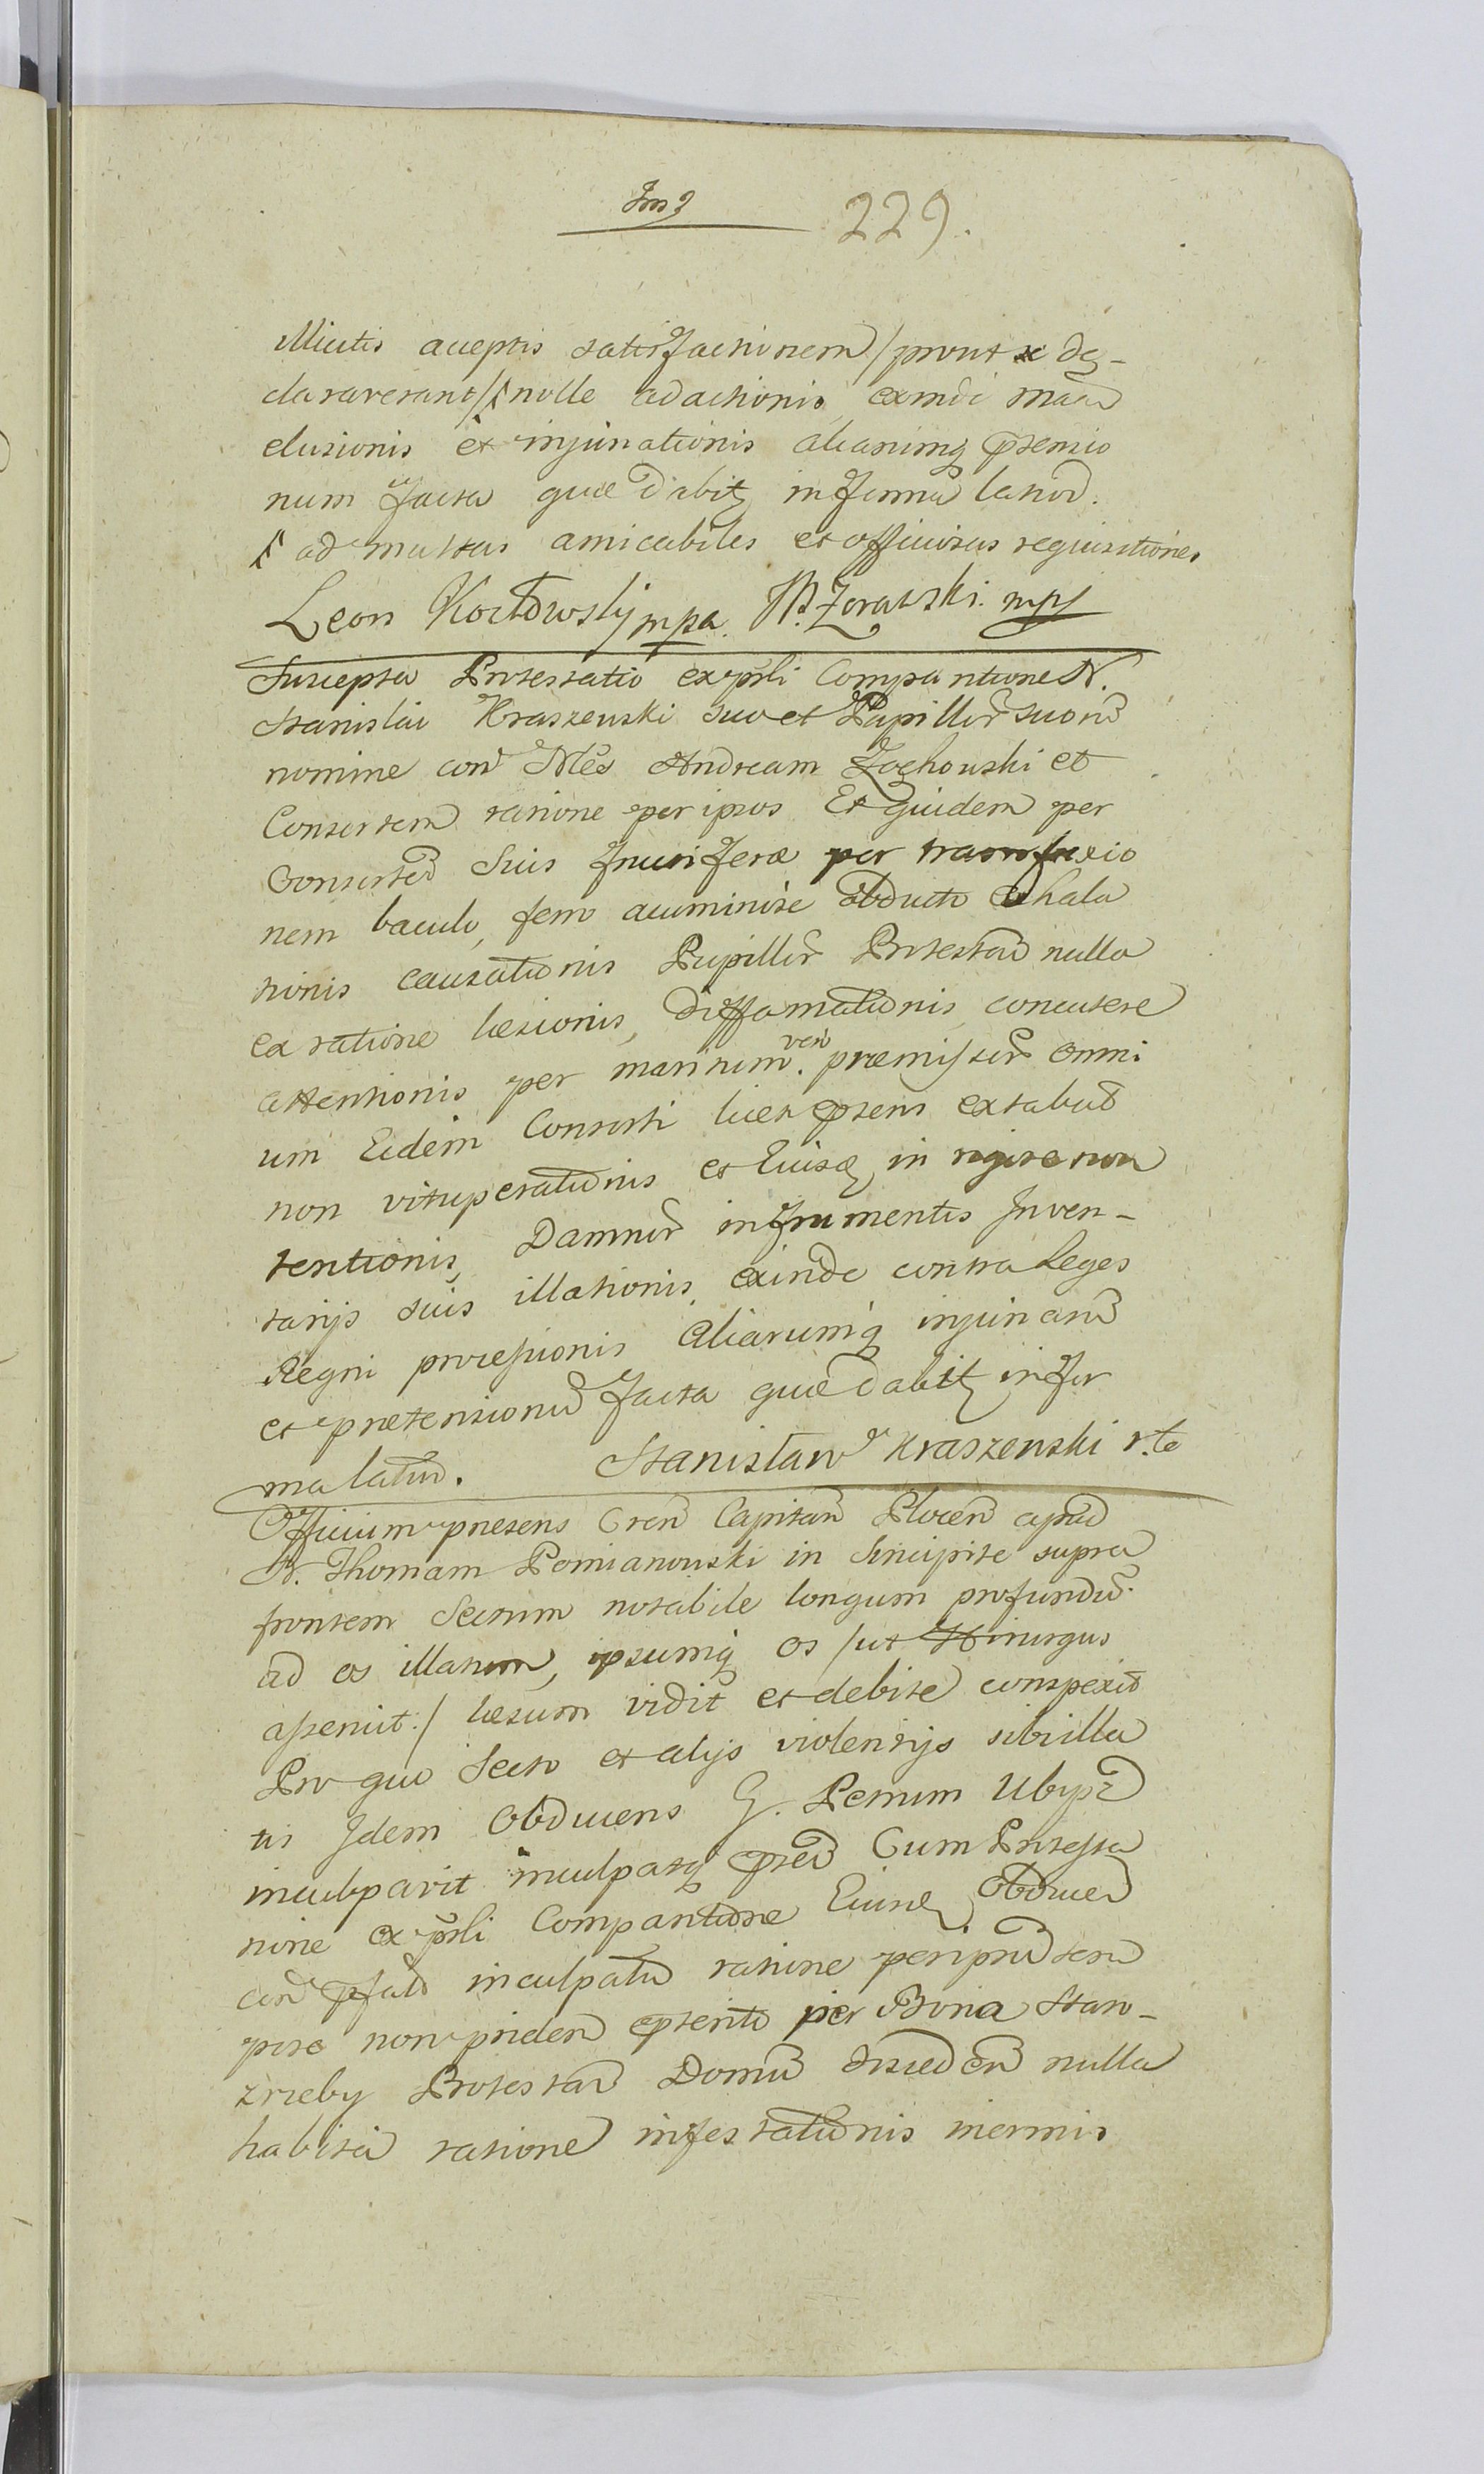 229.
Mictis acceptis satisfactionem / prout se de-
claraverant / nolle adactionis, exindi
elusionis et injuriationis aliarumq prensio
num facta quæ dabitz in forma latiori.
ad multas amicabiles et officiosas requisitiones
Leon Kozłowsky mpa. Zorawski. mpp
Suscepta Protestatio ex prsli Comparitione N.
Stanislai Kraszenski suo et Pupillor suor
nomine con Nles Andream Zochowski et
Consortem ratione per ipsos Et quidem per
Consortem Suis fructiferæ per transfixio
nem baculo, ferro acuminose obducto
tionis causationis Pupillor Protestan nulla
ex ratione læsionis, diffamationis, concutere
attentionis per maritum vero præmissor omni
um Eidem Consorti licet prsens extabat
non vituperationis et Eiusq in
tentionis, Damnor in frumentis Inven-
tarijs suis illationis, exinde contra Leges
Regni processionis Aliarumq injuriarum
et prætensionum facta quæ dabitz in for
ma latiori. Stanisław Kraszenski
Officium præsens Cren Capitan Plocen apud
N. Thomam Pomianowski in Sincipite supra
frontem Sectum notabile longum profundum
ad os illatum, ipsumq os / ut Hirurgus
asseruit / læsum vidit et debite conspexit
Pro quo Secto et alijs violentijs sibi illa
tis Idem Obducens G. Petrum
inculpavit inculpatq prsen Cum Protesta
tione ex prsli Comparitione Eiusq Obducen
con præfat inculpatum ratione per ipsum tem
pore non pridem præterito per Bona Staro-
zrzeby Protestan Domum discedent nulla
habita ratione infestationis inermis